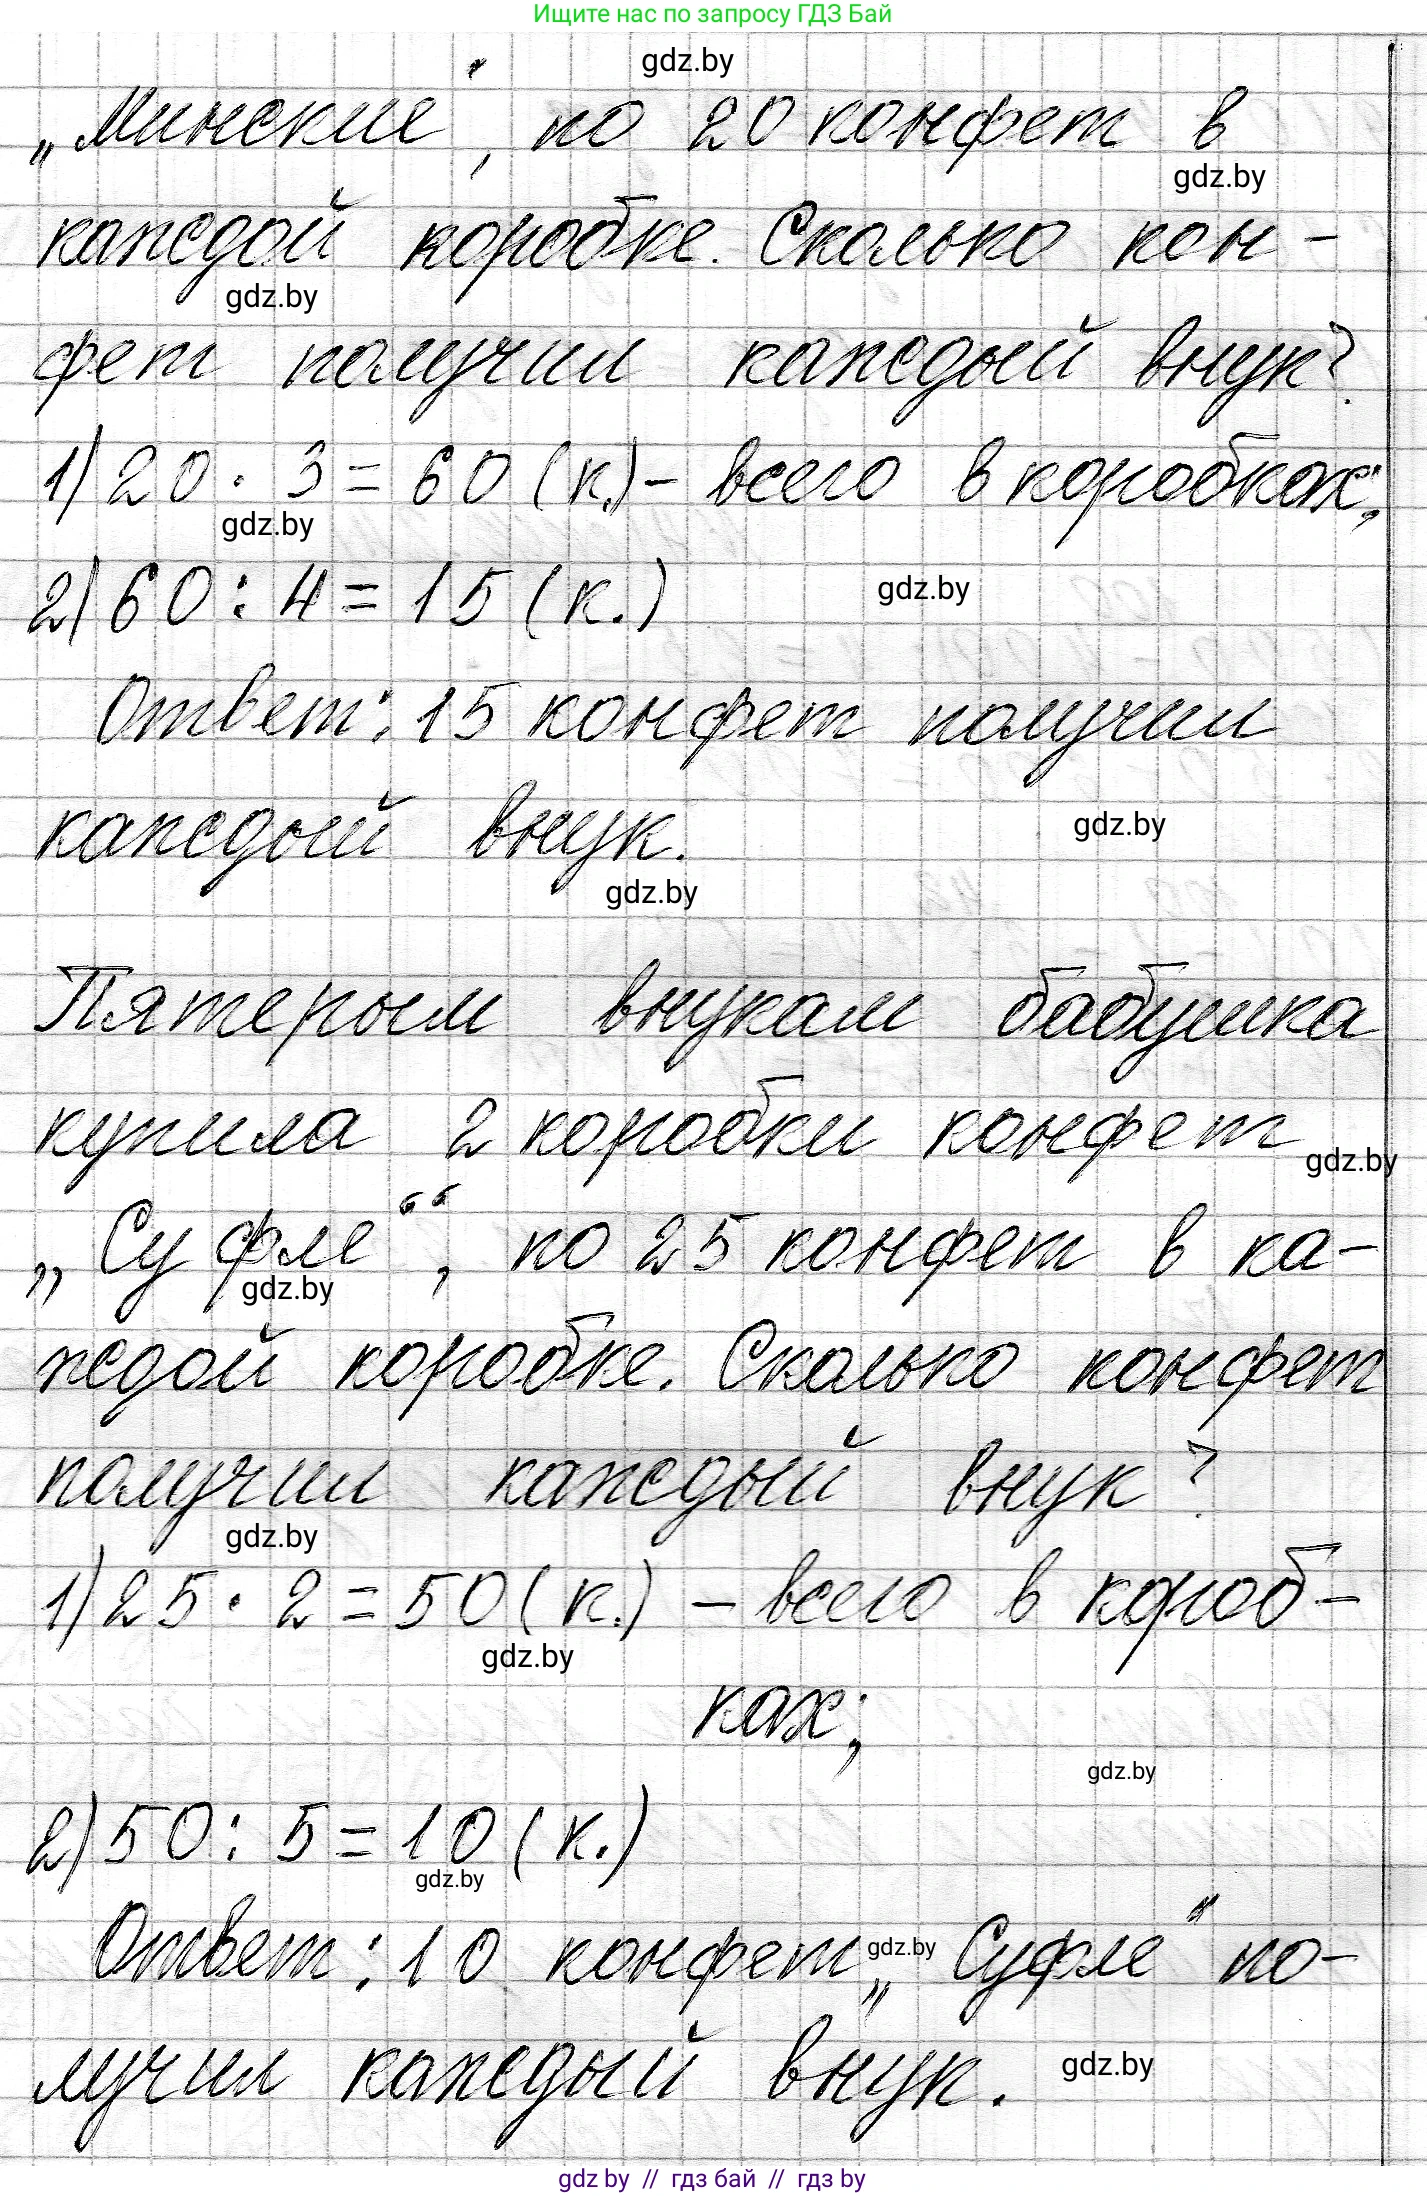 Ищите нас по запросу ГДЗ Бай
gdz.by
„Минские", по 20 конфет в
gdz.by
каждой коробке. Сколько кон-
gdz.by
фет получил каждый внук?
1) 20 · 3 = 60 (к.) - всего в коробках;
gdz.by
2) 60 : 4 = 15 (к.)
gdz.by
Ответ: 15 конфет получил
каждый внук.
gdz.by
gdz.by
Пятерым внукам бабушка
купила 2 коробки конфет
gdz.by
„Суфле“, по 25 конфет в ка-
gdz.by
ждой коробке. Сколько конфет
получил каждый внук?
gdz.by
1) 25 · 2 = 50 (к.) - всего в короб-
gdz.by
ках;
gdz.by
2) 50 : 5 = 10 (к.)
gdz.by
Ответ: 10 конфет „Суфле" по-
gdz.by
лучил каждый внук.
gdz.by
gdz by // гдз бай // гдз by